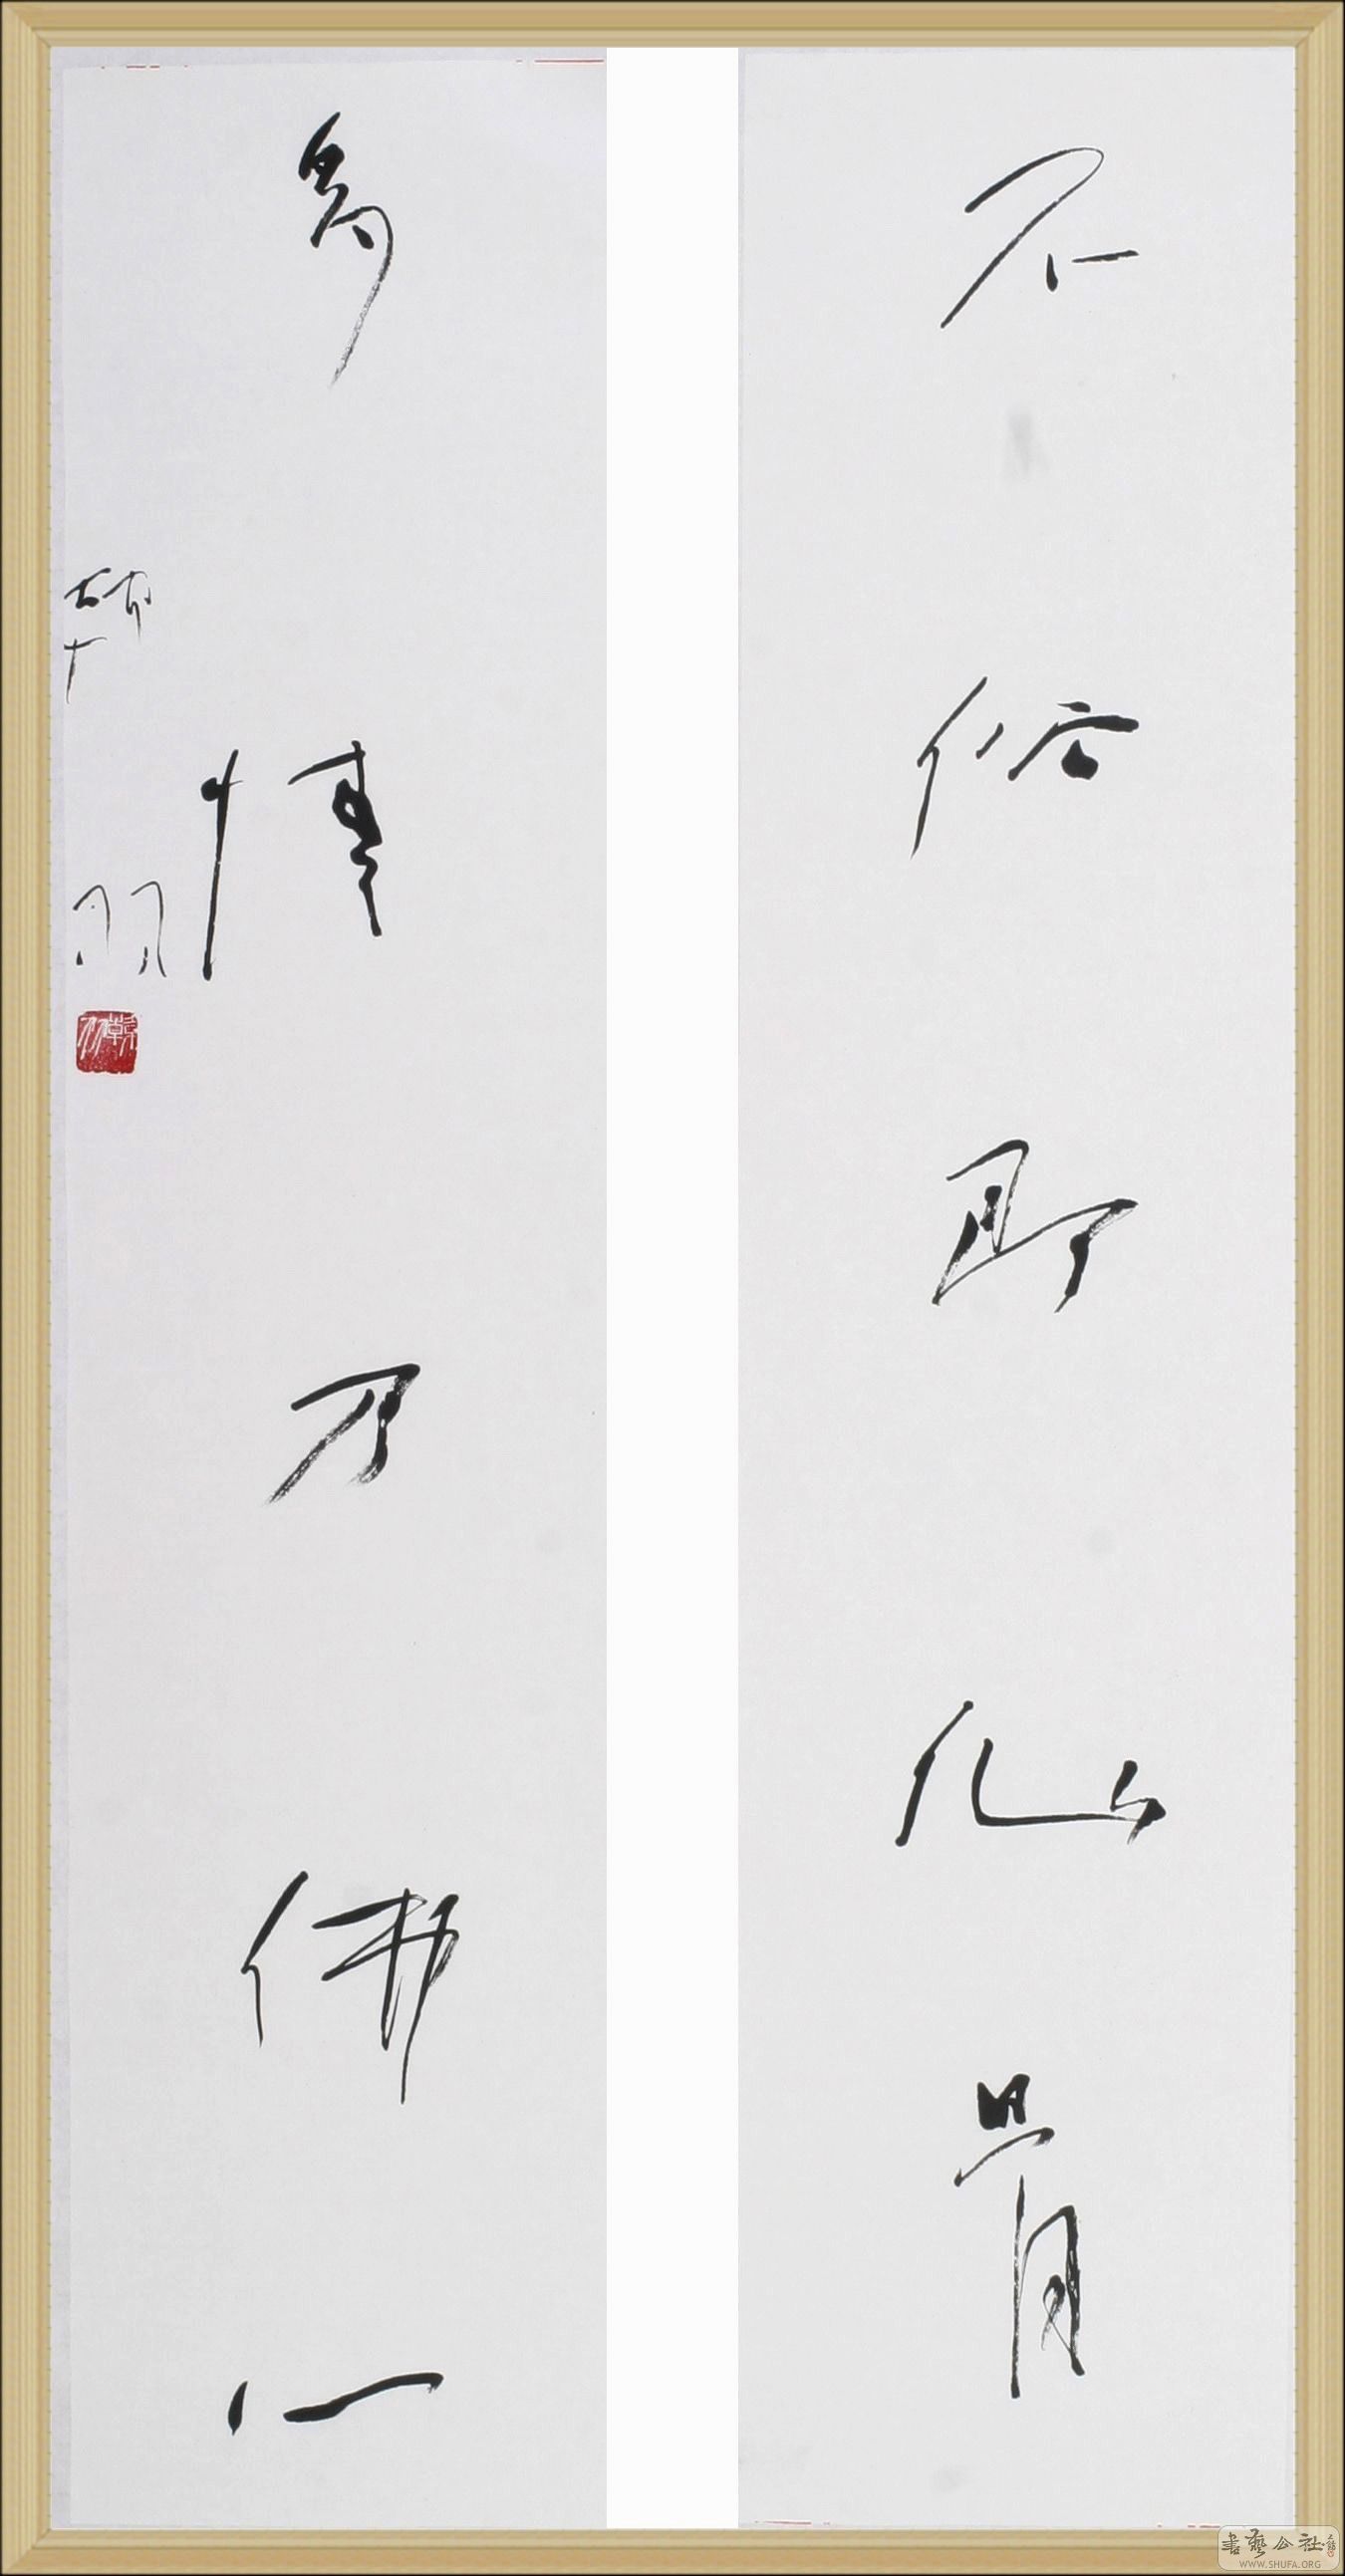 不俗即仙骨
多情乃佛心
韩羽
韓羽
書藝公社
WWW.SHUFA.ORG